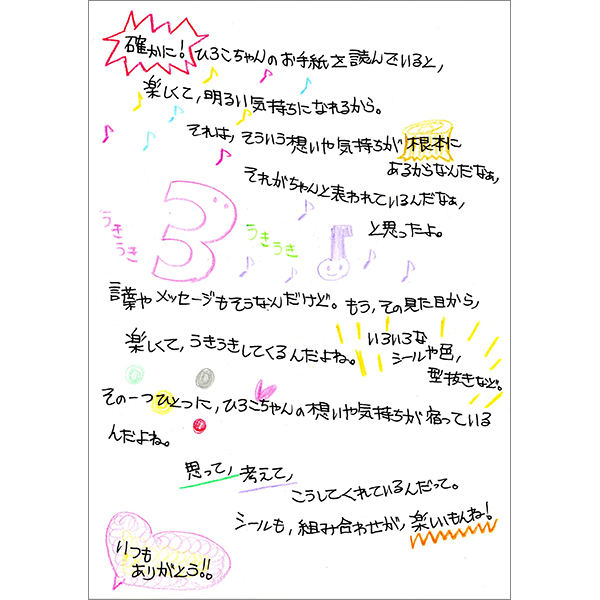 確かに! ひろこちゃんのお手紙を読んでいると,
楽しくて,明るい気持ちになれるから。
それは,そういう想いや気持ちが根本に
あるからなんだなぁ,
それがちゃんと表われているんだなぁ,
と思ったよ。
うき
うき
3
うきうき
言葉やメッセージもそうなんだけど。もう,その見た目から,
楽しくて,うきうきしてくるんだよね。
いろいろな
シールや色,
型抜きなど。
その一つひとつに,ひろこちゃんの想いや気持ちが宿っている
んだよね。
思って,考えて,
こうしてくれているんだって。
シールも,組み合わせが,楽しいもんね!
いつも
ありがとう!!